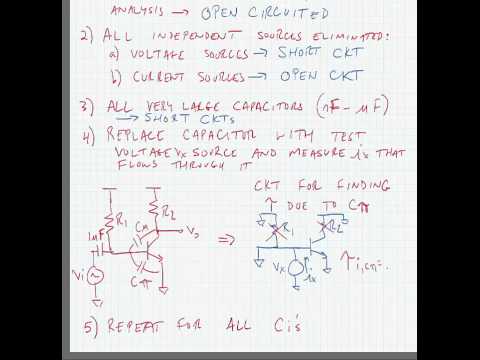 ANALYSIS → OPEN CIRCUITED
2) ALL INDEPENDENT SOURCES ELIMINATED:
a) VOLTAGE SOURCES → SHORT CKT
b) CURRENT SOURCES → OPEN CKT
3) ALL VERY LARGE CAPACITORS (nF - μF)
→ SHORT CKTs
4) REPLACE CAPACITOR WITH TEST
VOLTAGE Vx SOURCE AND MEASURE ix THAT
FLOWS THROUGH IT
CKT FOR FINDING
τ DUE TO Cπ
R1
R2
1μF
Cμ
Vo
⇒
Vi
Cπ
R1
R2
Vx
ix
τ1,cπ=
5) REPEAT FOR ALL Ci's